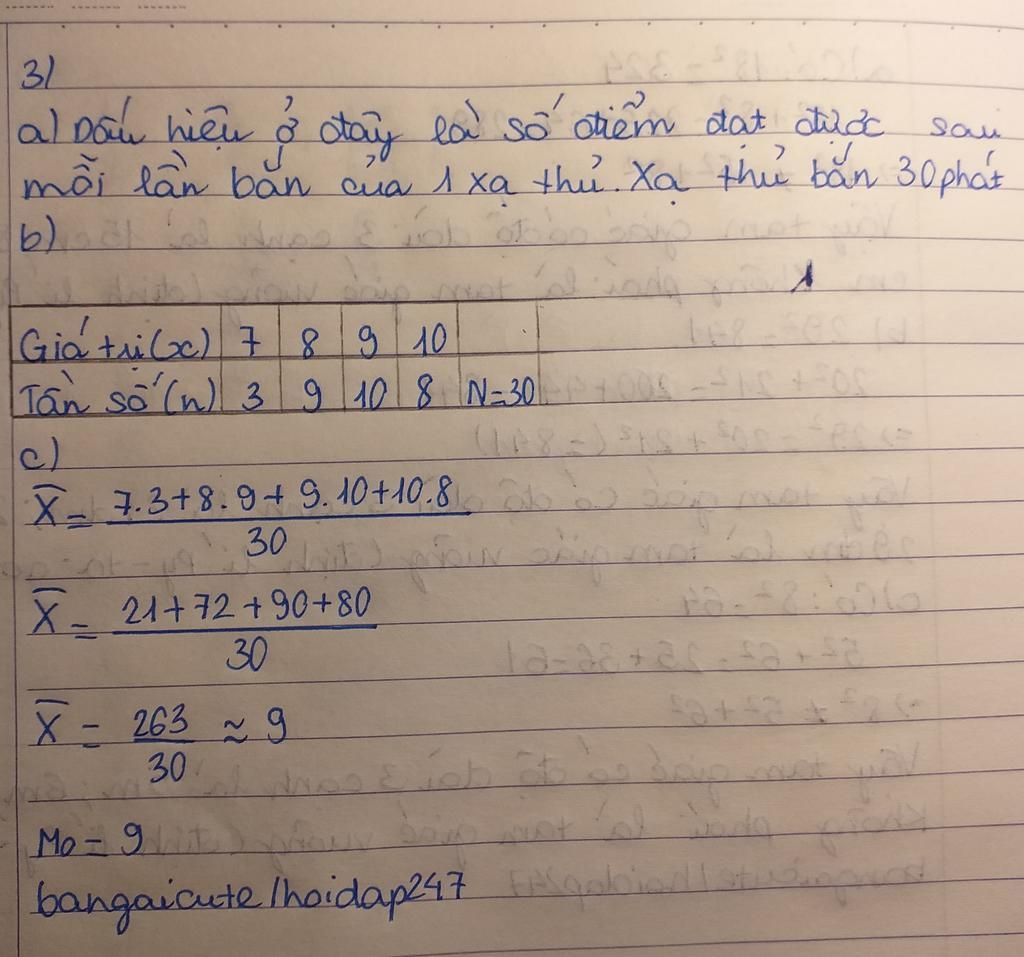 3)
a) Dấu hiệu ở đây là số điểm đạt được sau
mỗi lần bắn của 1 xạ thủ. Xạ thủ bắn 30 phát
b)
Giá trị (x) 7 8 9 10
Tần số (n) 3 9 10 8 N=30
c)
X̄ = 7.3+8.9+9.10+10.8 / 30
X̄ = 21+72+90+80 / 30
X̄ = 263/30 ≈ 9
Mo = 9
bangaicute/hoidap247